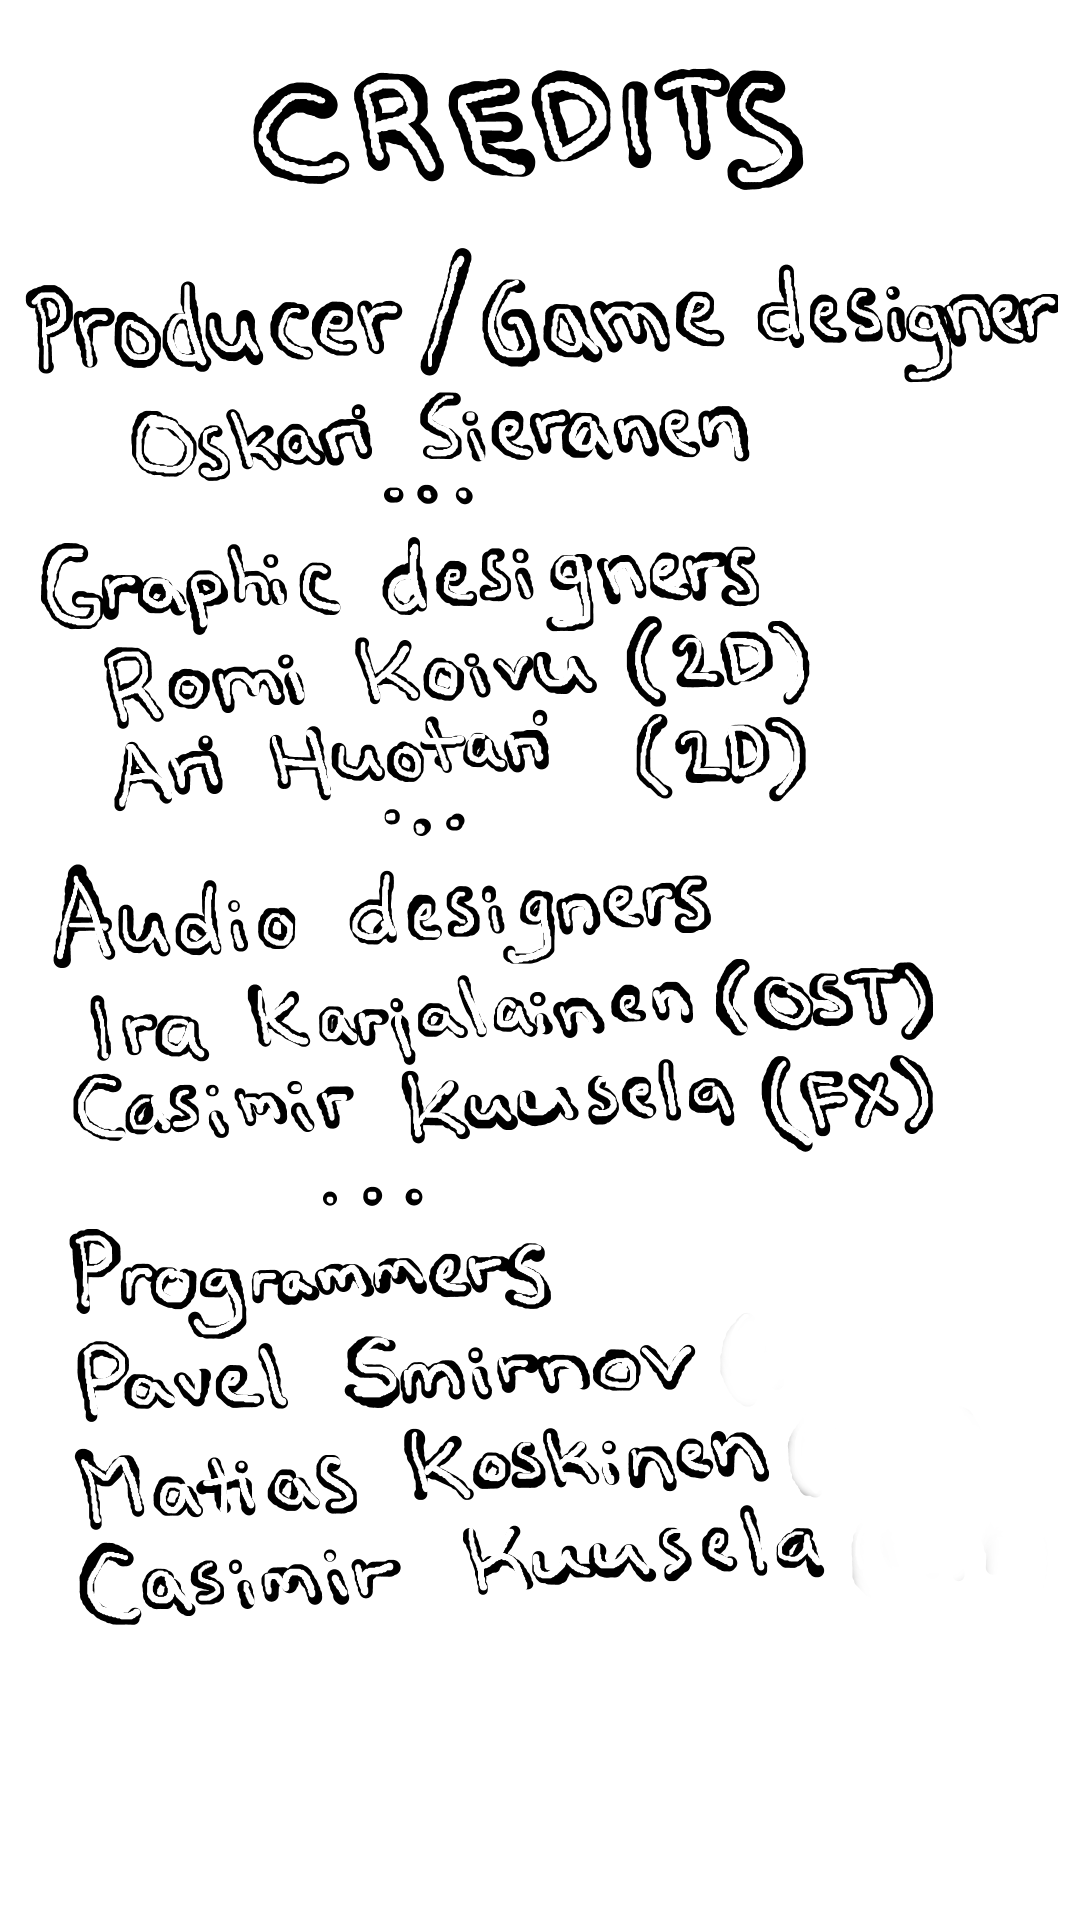 CREDITS
Producer/Game designer
Oskari Sieranen
...
Graphic designers
Romi Koivu (2D)
Ari Huotari (2D)
...
Audio designers
Ira Karjalainen (OST)
Casimir Kuusela (FX)
...
Programmers
Pavel Smirnov
Matias Koskinen
Casimir Kuusela